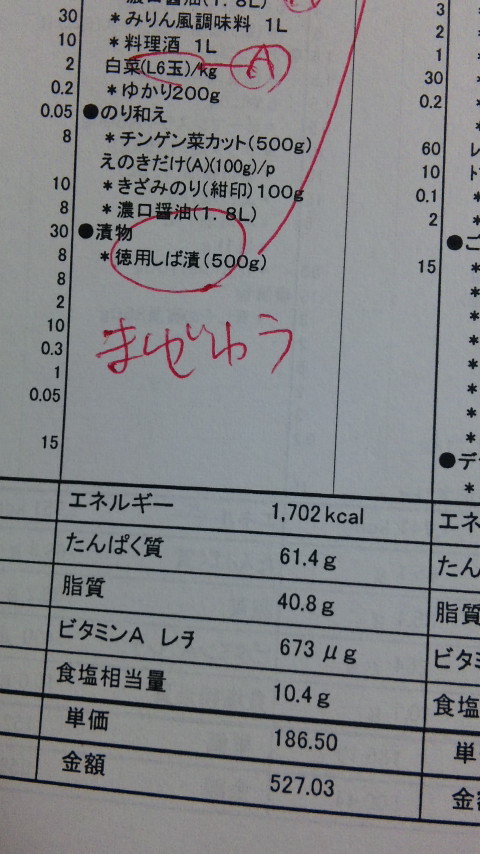 濃口醤油(1.8L)
30 ＊みりん風調味料 1L
10 ＊料理酒 1L
2 白菜(L6玉)/kg A
0.2 ＊ゆかり200g
0.05 ●のり和え
8 ＊チンゲン菜カット(500g)
えのきだけ(A)(100g)/p
10 ＊きざみのり(紺印)100g
8 ＊濃口醤油(1.8L)
30 ●漬物
8 ＊徳用しば漬(500g)
8
2
10
0.3
1
0.05
15
まぜじゅう
エネルギー 1,702kcal
たんぱく質 61.4g
脂質 40.8g
ビタミンA レチ 673μg
食塩相当量 10.4g
単価 186.50
金額 527.03
3
2
1
30
0.2
60 レ
10 ト
0.1 ＊
2 ＊
●ご
15 ＊
＊
＊
＊
＊
＊
＊
＊
●デ
＊
エネ
たん
脂質
ビタ
食塩
単
金